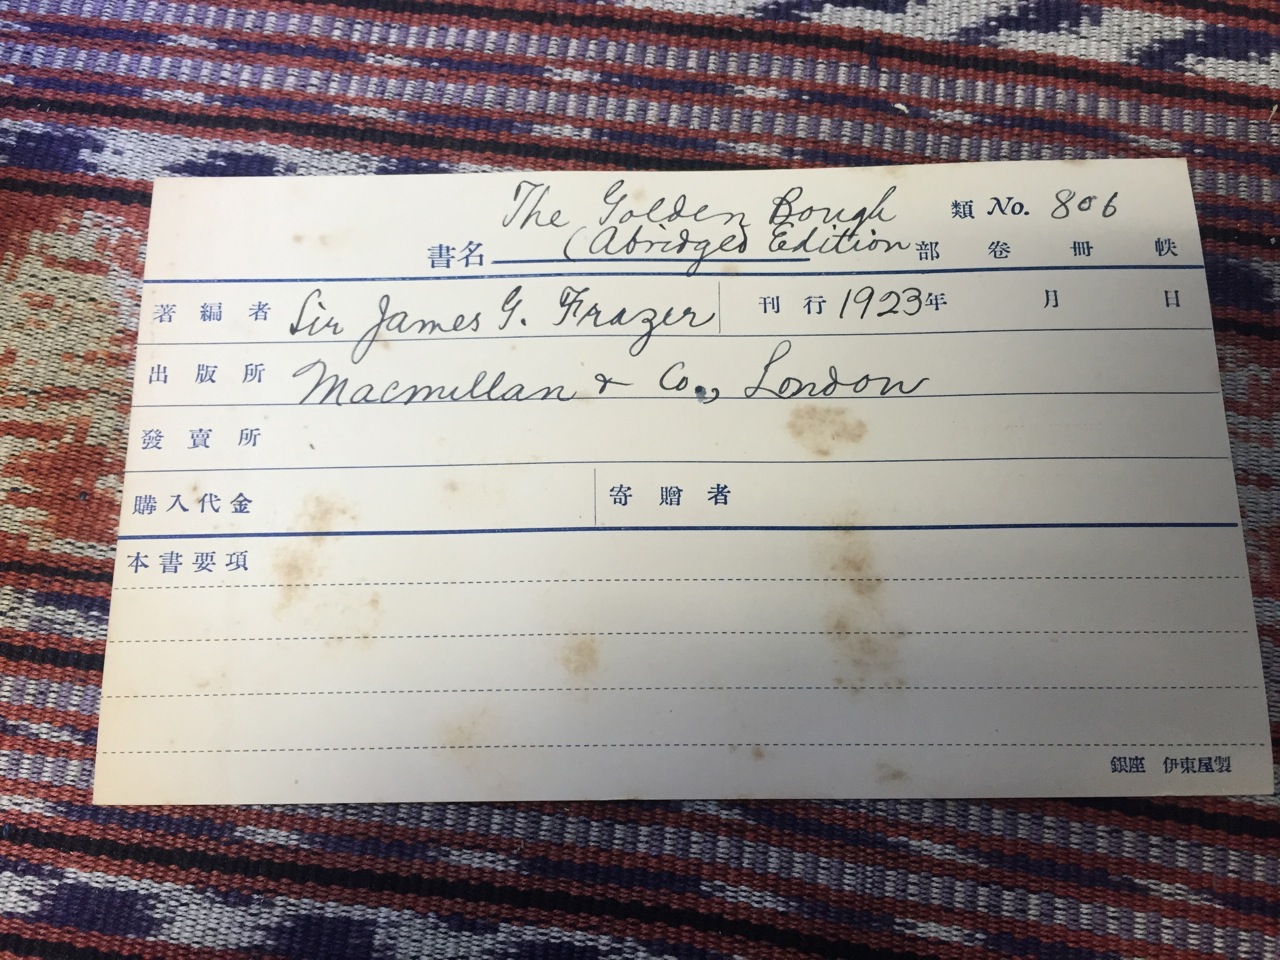 The Golden Bough 類 No. 806
書名 (Abridged Edition 部 卷 冊 帙
著編者 Sir James G. Frazer 刊行 1923年 月 日
出版所 Macmillan & Co., London
發賣所
購入代金 寄贈者
本書要項
銀座 伊東屋製